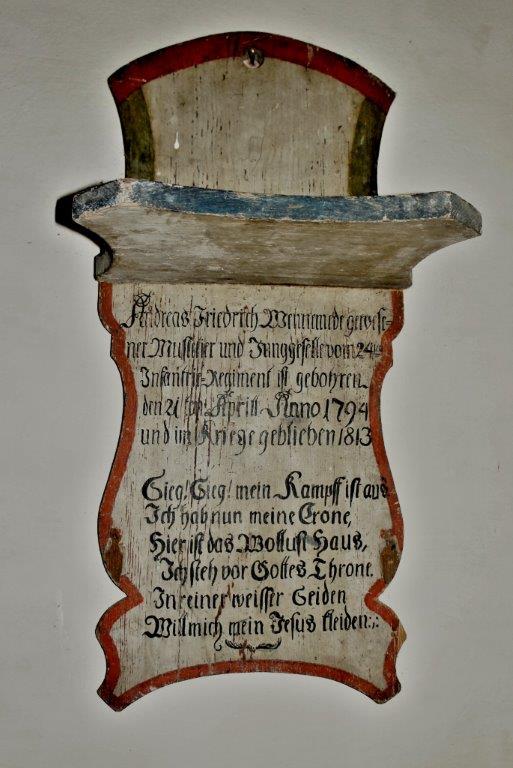 Andreas Friedrich Wehnemede gewese-
ner Musqetier und Junggeselle vom 24ten
Infantrie-Regiment ist gebohren
den 21ten Aprill Anno 1794
und im Kriege geblieben 1813
Sieg! Sieg! mein Kampff ist aus
Ich hab nun meine Crone,
Hier ist das Wollust Haus,
Ich steh vor Gottes Throne.
In reiner weisser Seiden
Will mich mein Jesus kleiden.: